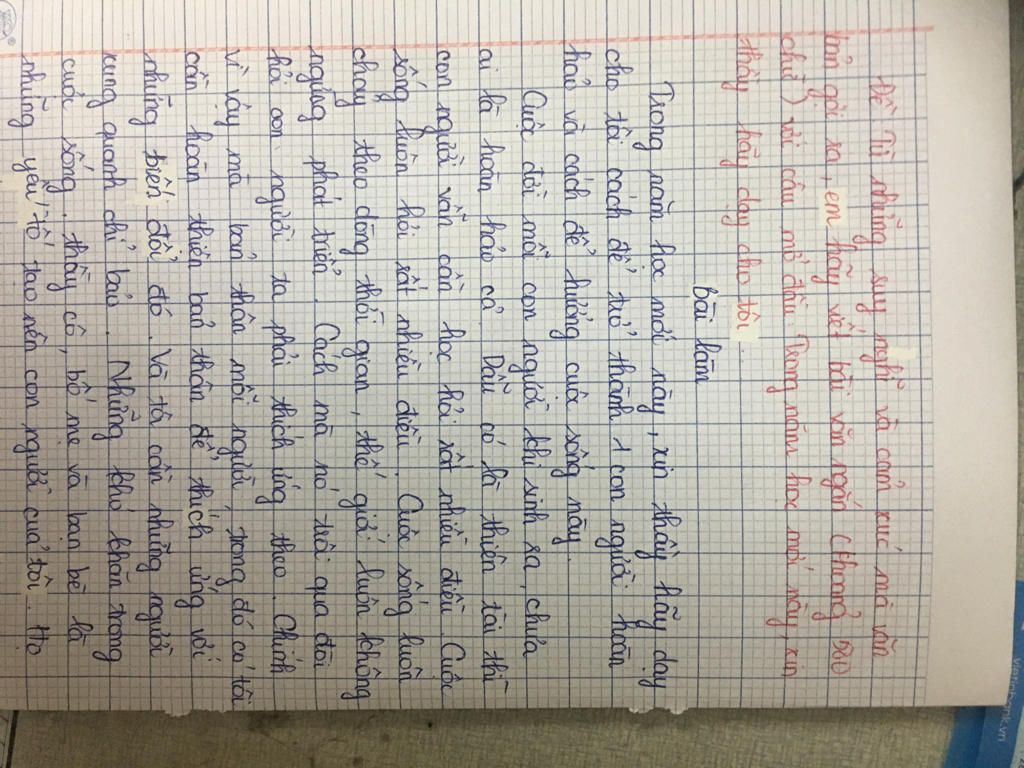 Đề Từ những suy nghĩ và cảm xúc mà văn
bản gởi ra, em hãy viết bài văn ngắn (khoảng 500
chữ) với câu mở đầu: Trong năm học mới này, xin
thầy hãy dạy cho tôi...
Bài làm
Trong năm học mới này, xin thầy hãy dạy
cho tôi cách để trở thành 1 con người hoàn
hảo và cách để hưởng cuộc sống này.
Cuộc đời mỗi con người khi sinh ra, chưa
ai là hoàn hảo cả. Dẫu có là thiên tài thì
con người vẫn cần học hỏi rất nhiều điều. Cuộc
sống luôn hỏi rất nhiều điều. Cuộc sống luôn
chạy theo dòng thời gian, thế giới luôn không
ngừng phát triển. Cách mà nó trôi qua đòi
hỏi con người ta phải thích ứng theo. Chính
vì vậy mà bản thân mỗi người, trong đó có tôi
cần hoàn thiện bản thân để thích ứng với
những biến đổi đó. Và tôi cần những người
xung quanh chỉ bảo. Những khó khăn trong
cuộc sống, thầy cô, bố mẹ và bạn bè là
những yếu tố tạo nên con người của tôi. Họ
vietinbank.vn